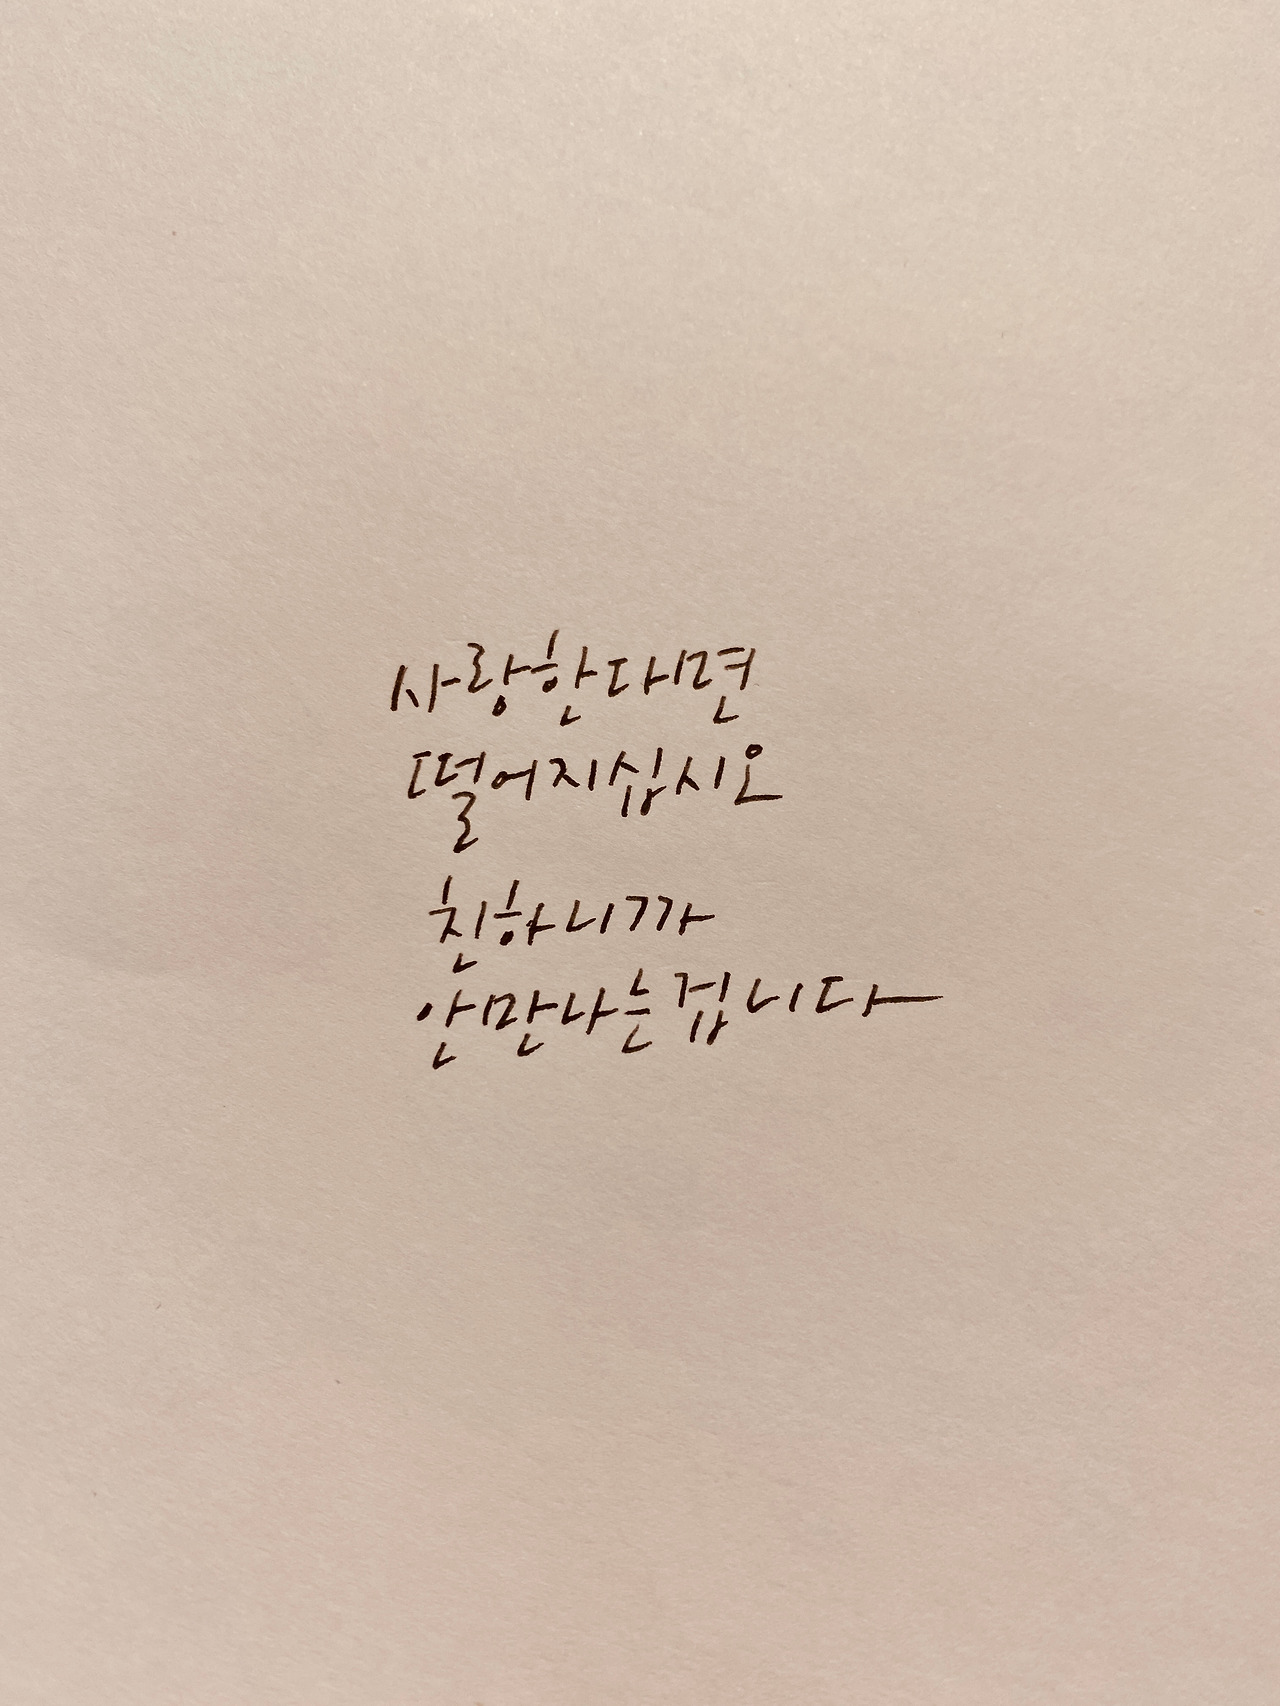 사랑한다면
떨어지십시오
친하니까
안만나는겁니다